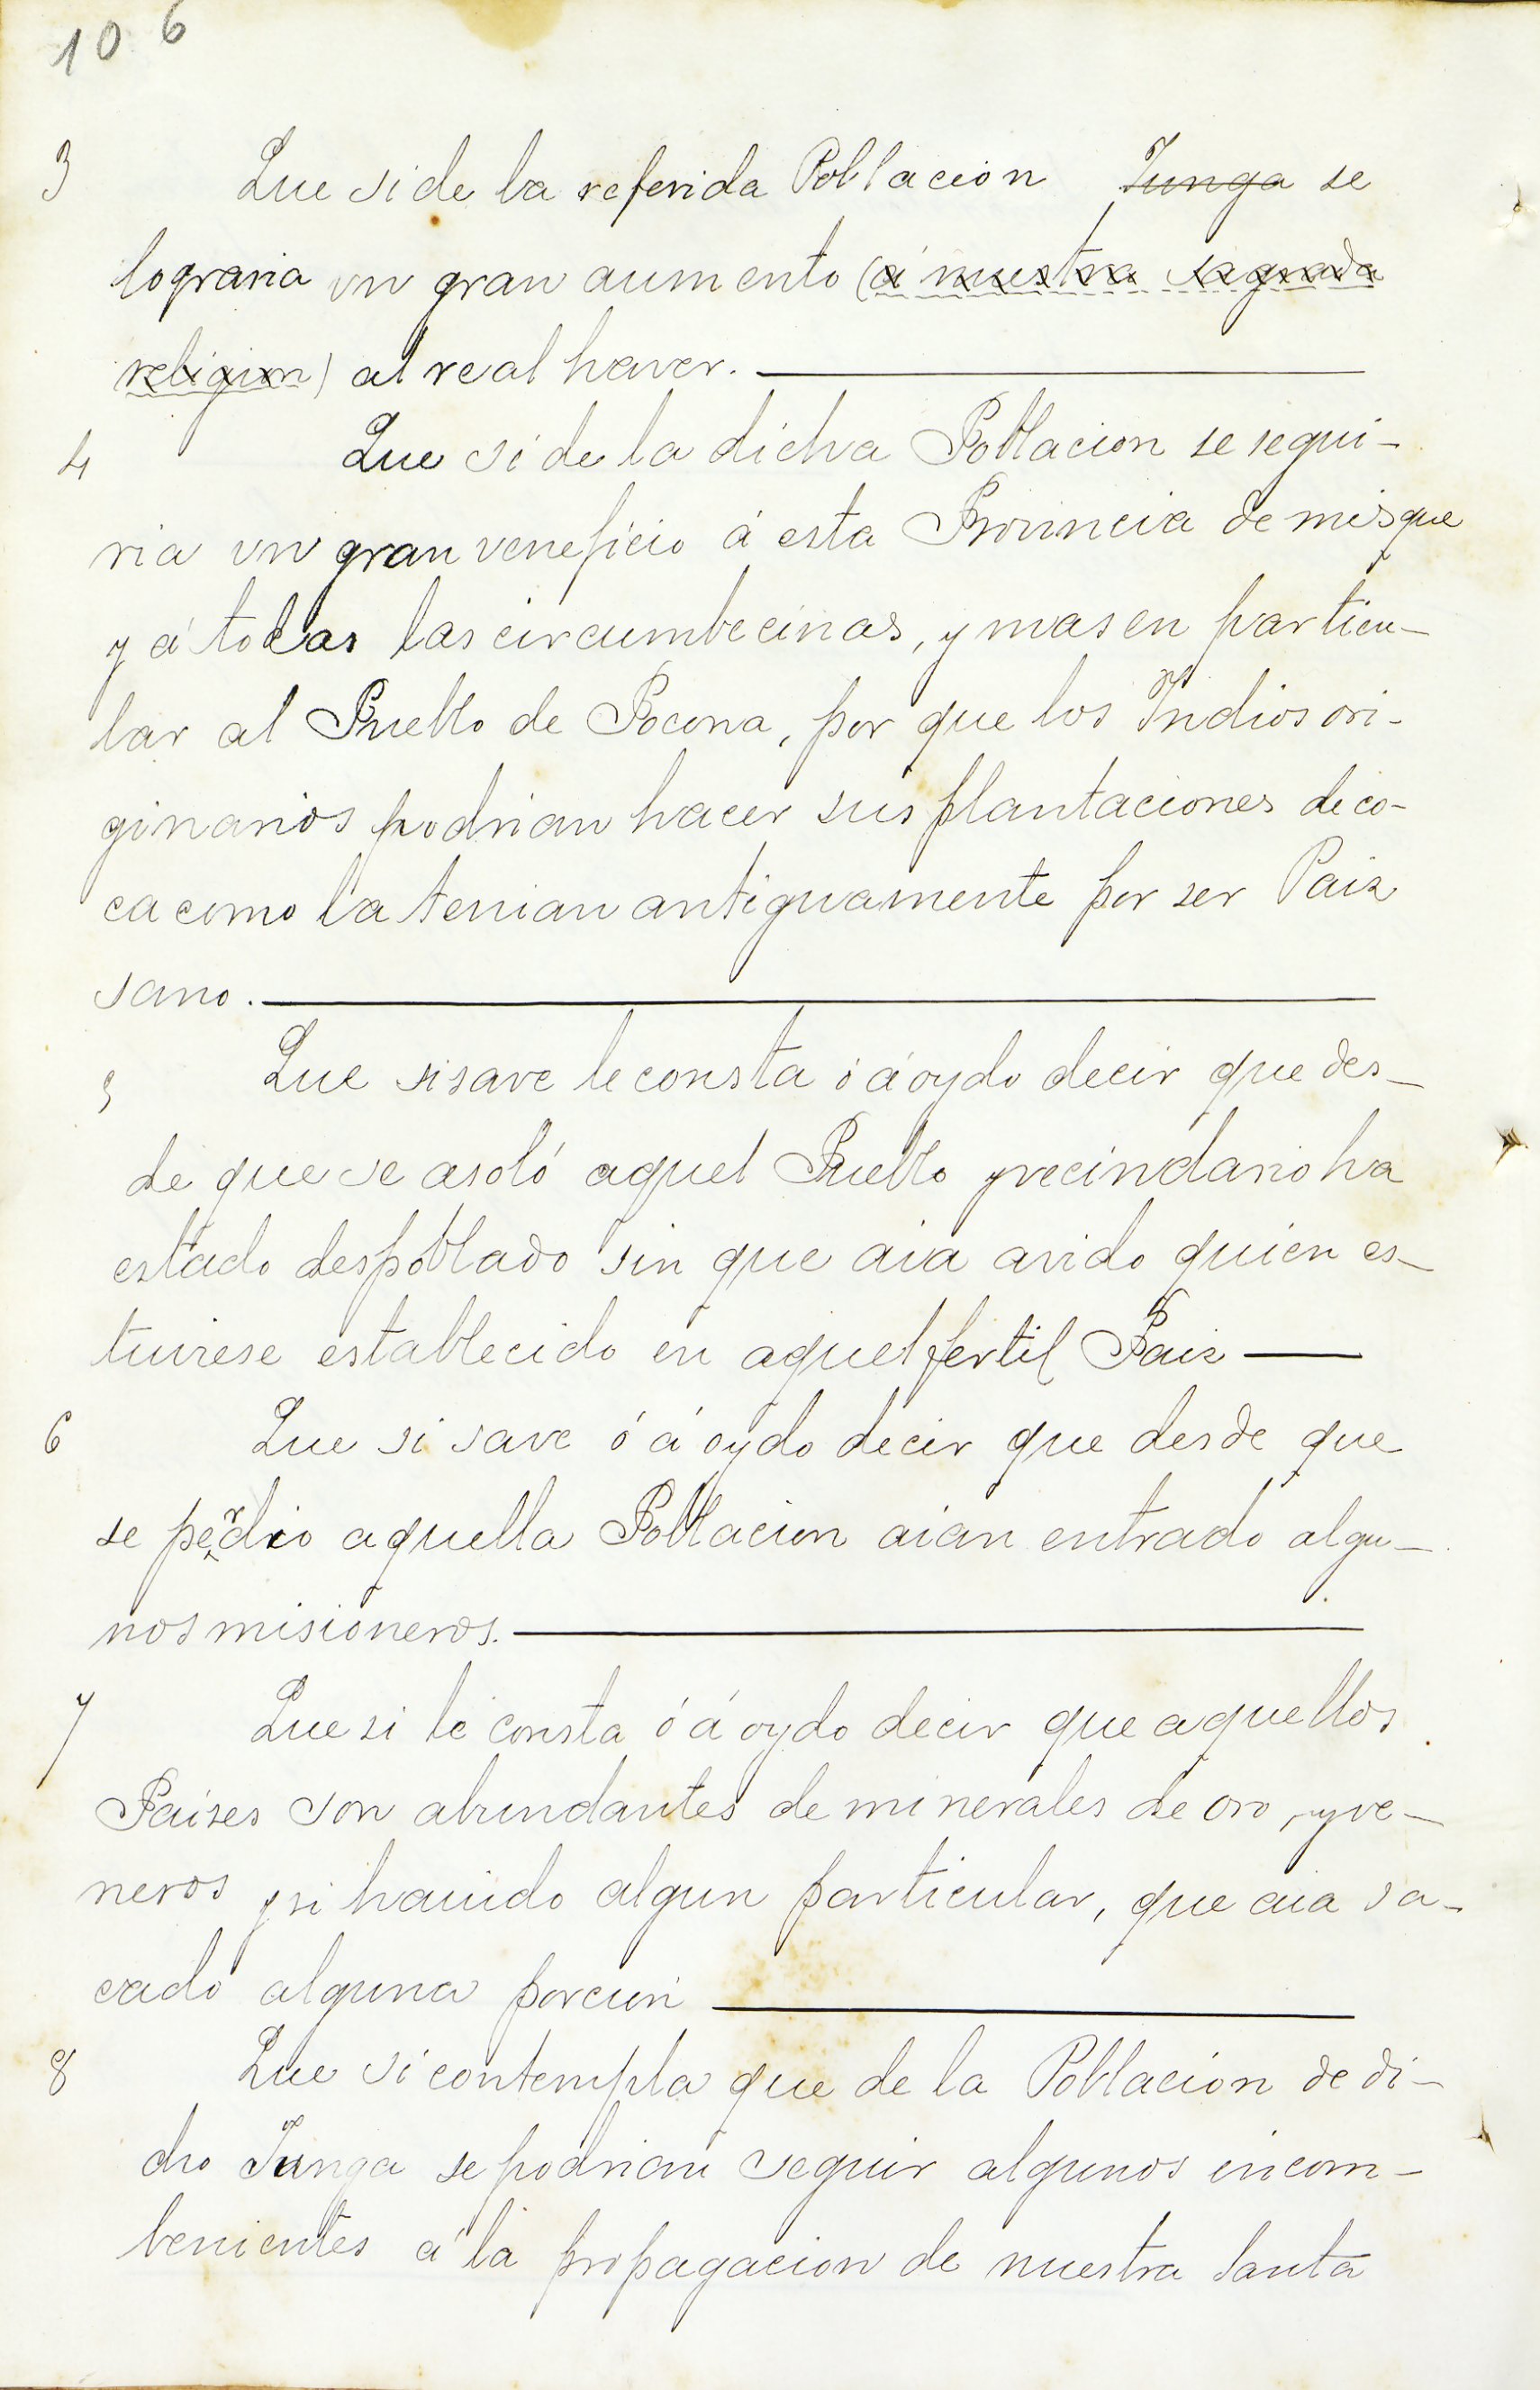 106
3 Que si de la referida Poblacion Iunga se
lograria vn gran aumento (á nuestra sagrada
religion) al real haver.
4 Que si de la dicha Poblacion se segui-
ria vn gran veneficio á esta Provincia de misque
y á todas las circumbecinas, y mas en particu-
lar al Pueblo de Pocona, por que los Indios ori-
ginarios podrian hacer sus plantaciones de co-
ca como la tenian antiguamente por ser Paiz
sano.
5 Que si save le consta ó á oydo decir que des-
de que se asoló aquel Pueblo y vecindario ha
estado despoblado sin que aia avido quien es-
tuviese establecido en aquel fertil Paiz
6 Que si save ó á oydo decir que desde que
se perdio aquella Poblacion aian entrado algu-
nos misioneros.
7 Que si le consta ó á oydo decir que aquellos
Paises son abundantes de minerales de oro, y ve-
neros y si havido algun particular, que aia sa-
cado alguna porcion
8 Que si contempla que de la Poblacion de di-
cho Iunga se podrian seguir algunos incom-
benientes á la propagacion de nuestra Santa